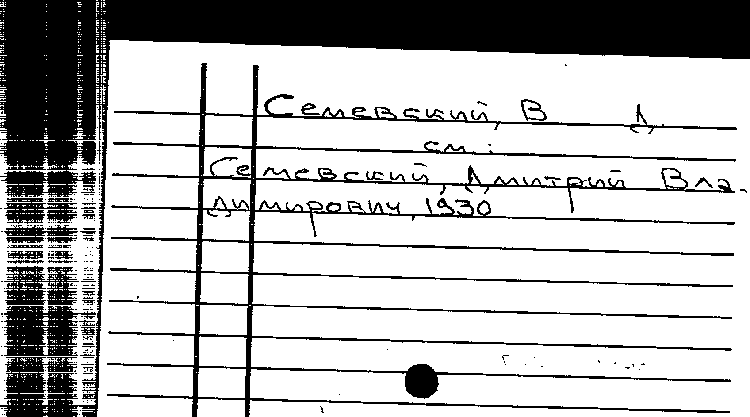 Семевский, В Д.
см.:
Семевский, Дмитрий Вла-
димирович, 1930